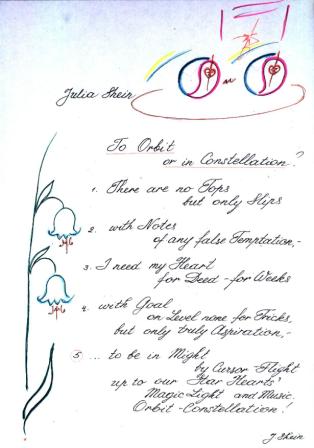 Julia Shein
To Orbit
or in Constellation?
1. There are no Tops
but only Slips
2. with Notes
of any false Temptation,-
3. I need my Heart
for Deed - for Weeks
4. with Goal
on Level none for Tricks,
but only truly Aspiration,-
5. ... to be in Might
by Cursor-Flight
up to our Star Hearts'
Magic Light and Music.
Orbit-Constellation!
J Shein